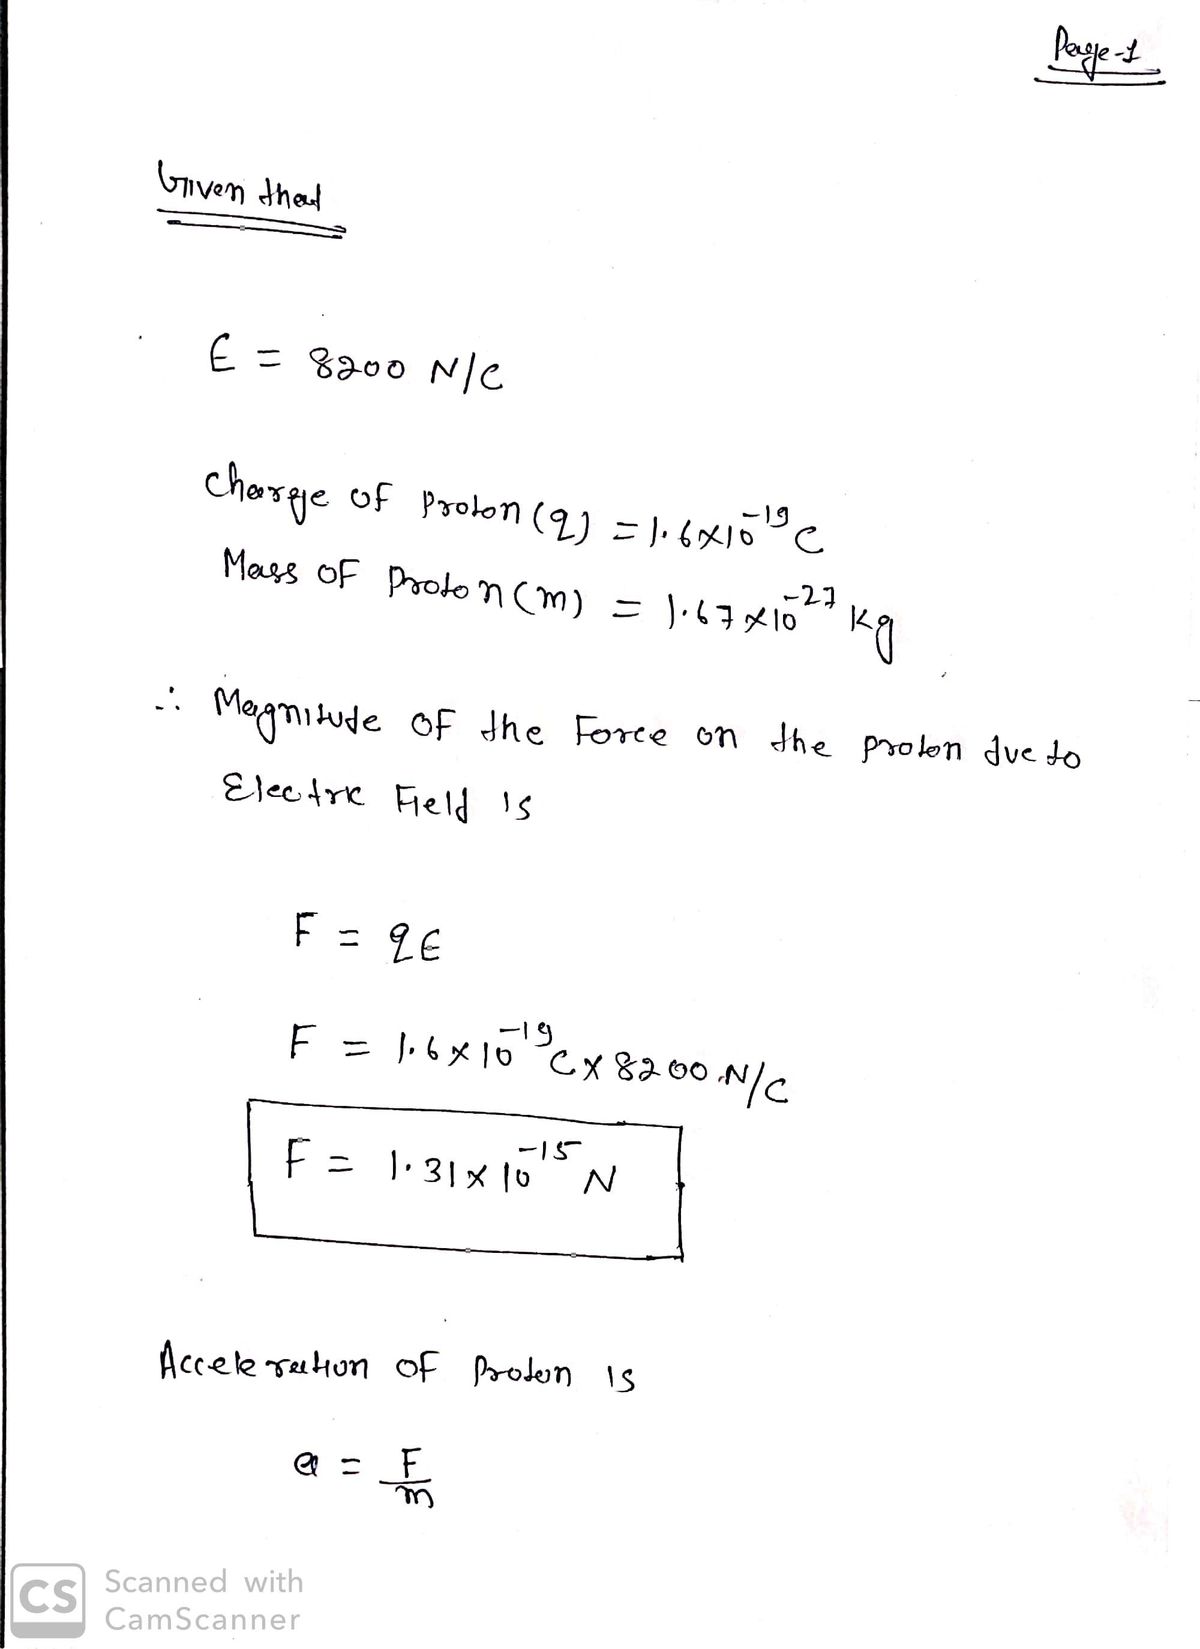 Page-1
Given that
E = 8200 N/C
charge of Proton (q) = 1.6×10⁻¹⁹ C
Mass of Proton (m) = 1.67×10⁻²⁷ Kg
∴ Magnitude of the Force on the proton due to
Electric Field is
F = qE
F = 1.6×10⁻¹⁹ C × 8200 N/C
F = 1.31×10⁻¹⁵ N
Acceleration of Proton is
a = F/m
CS Scanned with
CamScanner